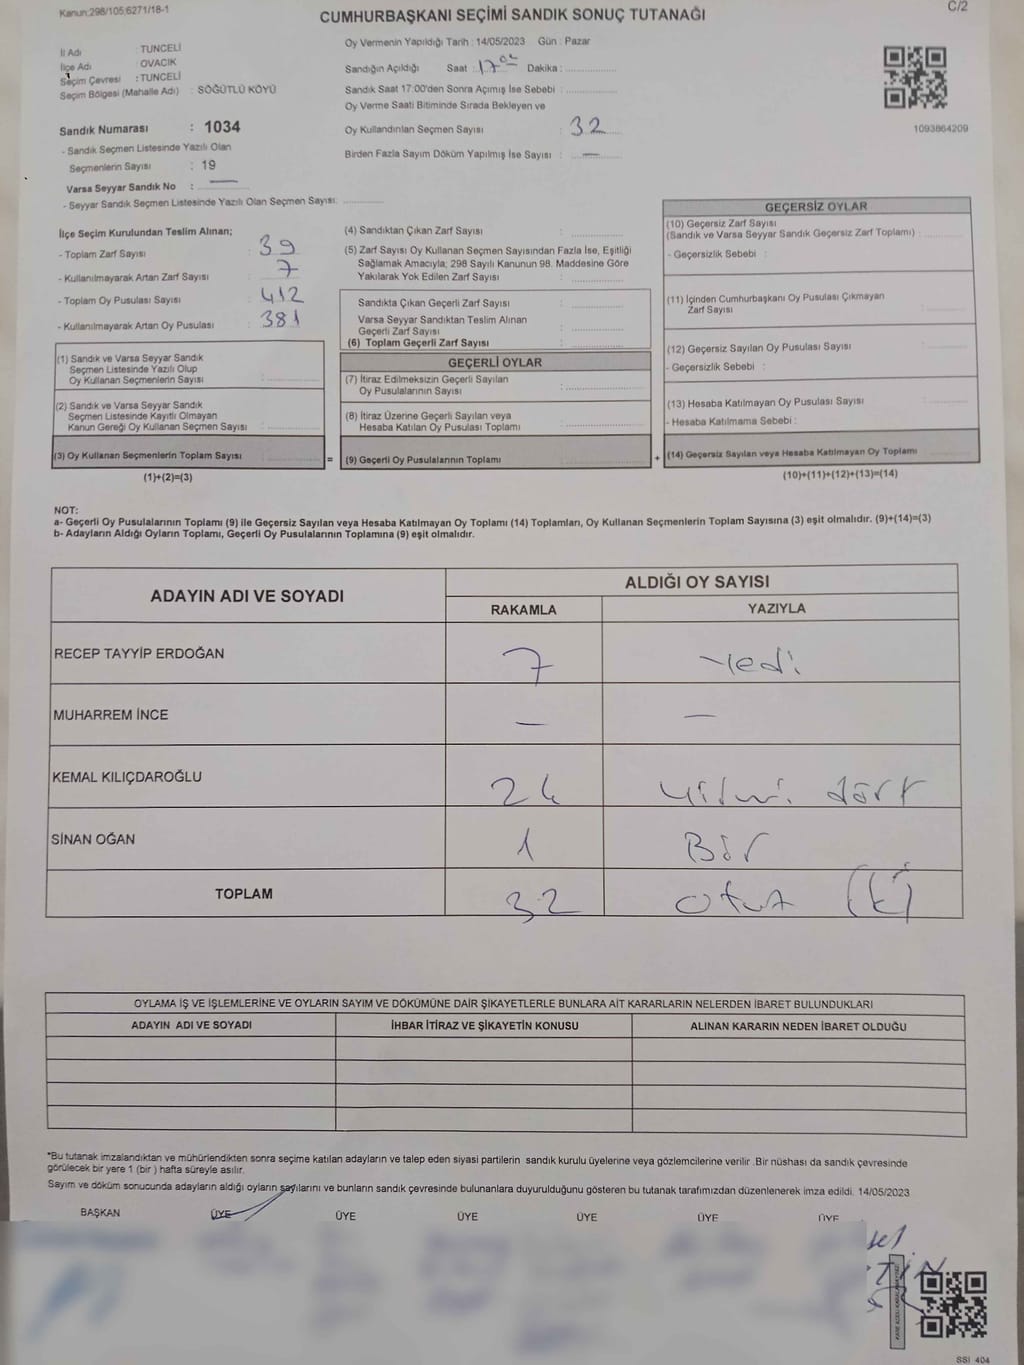 Kanun:298/105;6271/18-1
C/2
CUMHURBAŞKANI SEÇİMİ SANDIK SONUÇ TUTANAĞI
İl Adı : TUNCELİ
İlçe Adı : OVACIK
Seçim Çevresi : TUNCELİ
Seçim Bölgesi (Mahalle Adı) : SÖĞÜTLÜ KÖYÜ
Sandık Numarası : 1034
- Sandık Seçmen Listesinde Yazılı Olan
Seçmenlerin Sayısı : 19
Varsa Seyyar Sandık No : —
- Seyyar Sandık Seçmen Listesinde Yazılı Olan Seçmen Sayısı: ............
Oy Vermenin Yapıldığı Tarih : 14/05/2023 Gün : Pazar
Sandığın Açıldığı Saat : 17 Dakika : ............
Sandık Saat 17:00'den Sonra Açımış İse Sebebi : ............
Oy Verme Saati Bitiminde Sırada Bekleyen ve
Oy Kullandırılan Seçmen Sayısı : 32
Birden Fazla Sayım Döküm Yapılmış İse Sayısı : —
1093864209
İlçe Seçim Kurulundan Teslim Alınan;
- Toplam Zarf Sayısı : 39
- Kullanılmayarak Artan Zarf Sayısı : 7
- Toplam Oy Pusulası Sayısı : 412
- Kullanılmayarak Artan Oy Pusulası : 381
(1) Sandık ve Varsa Seyyar Sandık
Seçmen Listesinde Yazılı Olup
Oy Kullanan Seçmenlerin Sayısı : ............
(2) Sandık ve Varsa Seyyar Sandık
Seçmen Listesinde Kayıtlı Olmayan
Kanun Gereği Oy Kullanan Seçmen Sayısı : ............
(3) Oy Kullanan Seçmenlerin Toplam Sayısı : ............ =
(1)+(2)=(3)
(4) Sandıktan Çıkan Zarf Sayısı : ............
(5) Zarf Sayısı Oy Kullanan Seçmen Sayısından Fazla İse, Eşitliği
Sağlamak Amacıyla; 298 Sayılı Kanunun 98. Maddesine Göre
Yakılarak Yok Edilen Zarf Sayısı : ............
Sandıkta Çıkan Geçerli Zarf Sayısı : ............
Varsa Seyyar Sandıktan Teslim Alınan
Geçerli Zarf Sayısı : ............
(6) Toplam Geçerli Zarf Sayısı : ............
GEÇERLİ OYLAR
(7) İtiraz Edilmeksizin Geçerli Sayılan
Oy Pusulalarının Sayısı : ............
(8) İtiraz Üzerine Geçerli Sayılan veya
Hesaba Katılan Oy Pusulası Toplamı : ............
(9) Geçerli Oy Pusulalarının Toplamı : ............ +
GEÇERSİZ OYLAR
(10) Geçersiz Zarf Sayısı
(Sandık ve Varsa Seyyar Sandık Geçersiz Zarf Toplamı) : ............
- Geçersizlik Sebebi :
(11) İçinden Cumhurbaşkanı Oy Pusulası Çıkmayan
Zarf Sayısı : ............
(12) Geçersiz Sayılan Oy Pusulası Sayısı : ............
- Geçersizlik Sebebi :
(13) Hesaba Katılmayan Oy Pusulası Sayısı : ............
- Hesaba Katılmama Sebebi :
(14) Geçersiz Sayılan veya Hesaba Katılmayan Oy Toplamı : ............
(10)+(11)+(12)+(13)=(14)
NOT:
a- Geçerli Oy Pusulalarının Toplamı (9) ile Geçersiz Sayılan veya Hesaba Katılmayan Oy Toplamı (14) Toplamları, Oy Kullanan Seçmenlerin Toplam Sayısına (3) eşit olmalıdır. (9)+(14)=(3)
b- Adayların Aldığı Oyların Toplamı, Geçerli Oy Pusulalarının Toplamına (9) eşit olmalıdır.
ADAYIN ADI VE SOYADI ALDIĞI OY SAYISI
RAKAMLA YAZIYLA
RECEP TAYYİP ERDOĞAN 7 Yedi
MUHARREM İNCE — —
KEMAL KILIÇDAROĞLU 24 yirmi dört
SİNAN OĞAN 1 Bir
TOPLAM 32 otuz iki
OYLAMA İŞ VE İŞLEMLERİNE VE OYLARIN SAYIM VE DÖKÜMÜNE DAİR ŞİKAYETLERLE BUNLARA AİT KARARLARIN NELERDEN İBARET BULUNDUKLARI
ADAYIN ADI VE SOYADI İHBAR İTİRAZ VE ŞİKAYETİN KONUSU ALINAN KARARIN NEDEN İBARET OLDUĞU
*Bu tutanak imzalandıktan ve mühürlendikten sonra seçime katılan adayların ve talep eden siyasi partilerin sandık kurulu üyelerine veya gözlemcilerine verilir .Bir nüshası da sandık çevresinde
görülecek bir yere 1 (bir ) hafta süreyle asılır.
Sayım ve döküm sonucunda adayların aldığı oyların sayılarını ve bunların sandık çevresinde bulunanlara duyurulduğunu gösteren bu tutanak tarafımızdan düzenlenerek imza edildi. 14/05/2023
BAŞKAN ÜYE ÜYE ÜYE ÜYE ÜYE ÜYE
SSI 404